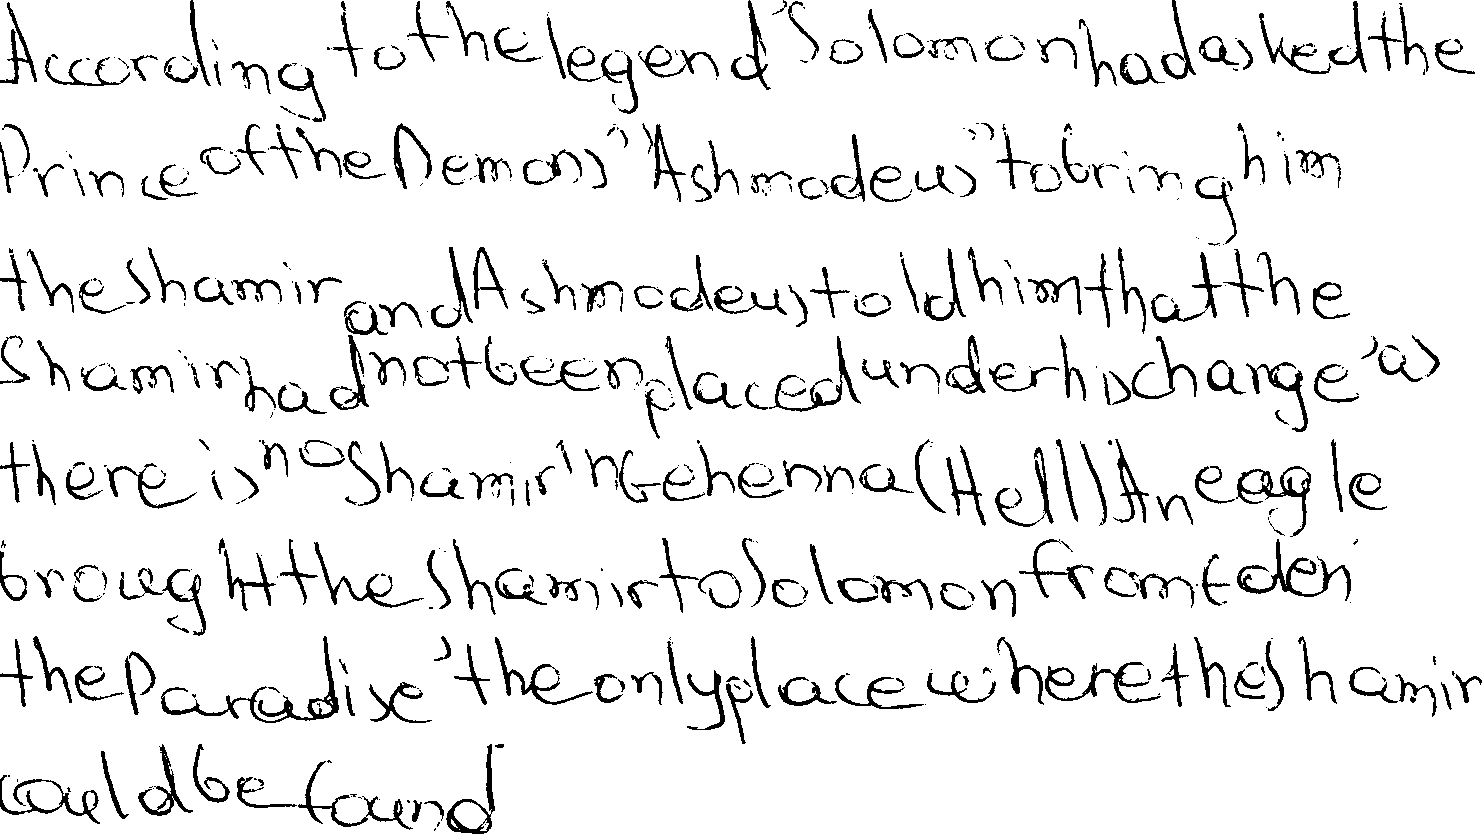 According to the legend' Solomon had asked the
Prince of the Demons' "Ashmodeus" to bring him
the Shamir and Ashmodeus told him that the
Shamir had not been placed under his charge 'as
there is no Shamir in Gehenna (Hell) An eagle
brought the Shamir to Solomon from Eden'
the Paradise 'the only place where the Shamir
could be found